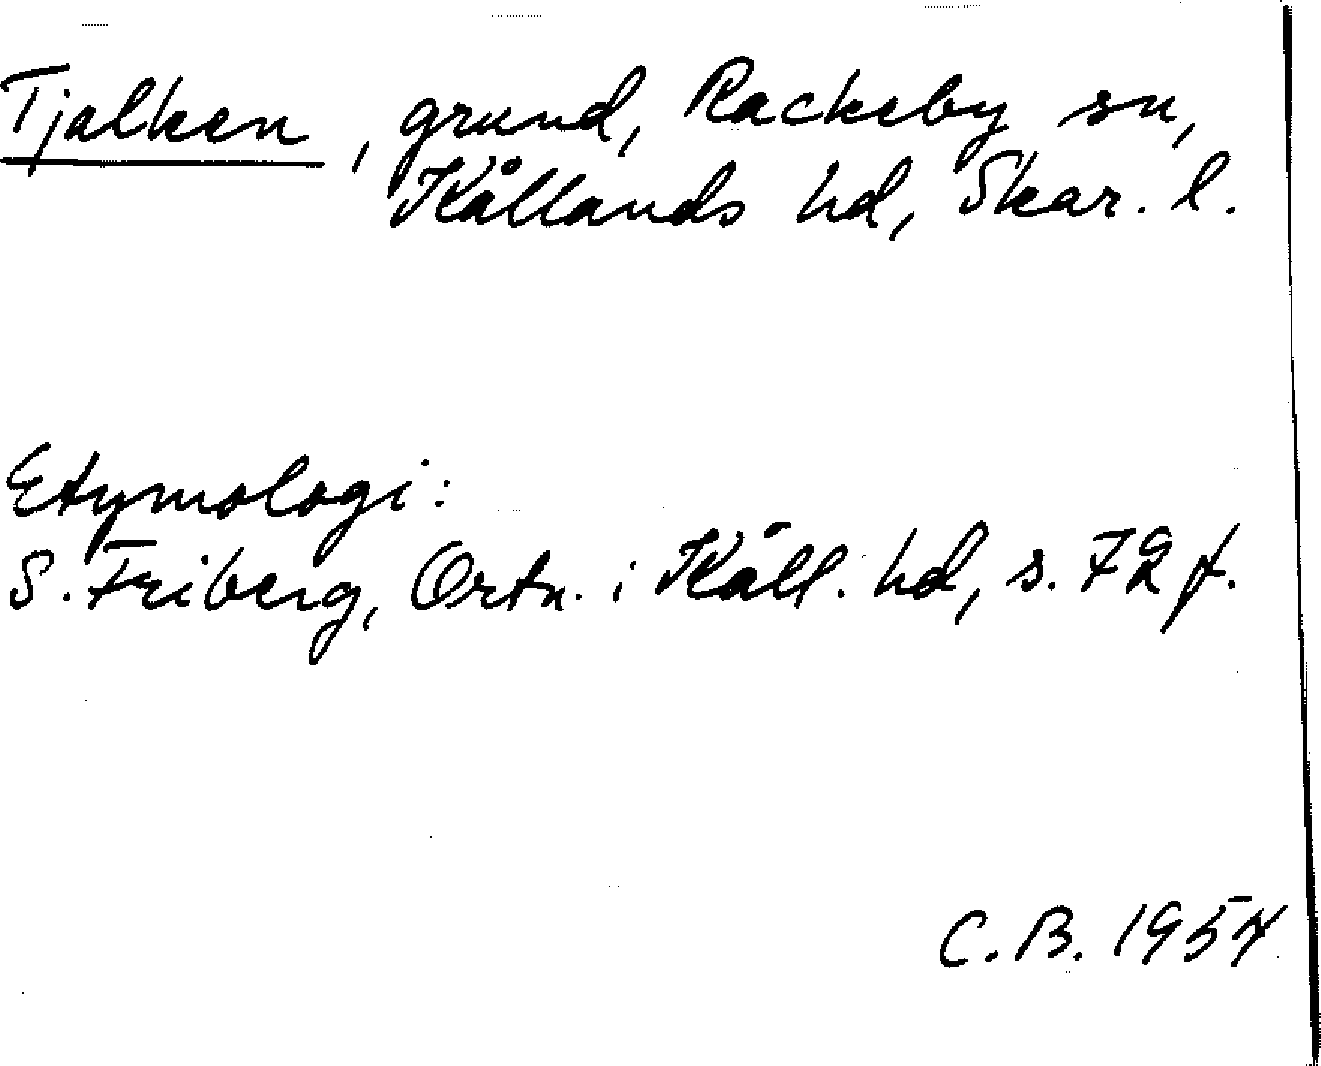 Tjalken, grund, Rackeby sn,
Kållands hd, Skar. l.
Etymologi:
S. Friberg, Ortn. i Kåll. hd, s. 72 f.
C. B. 1957